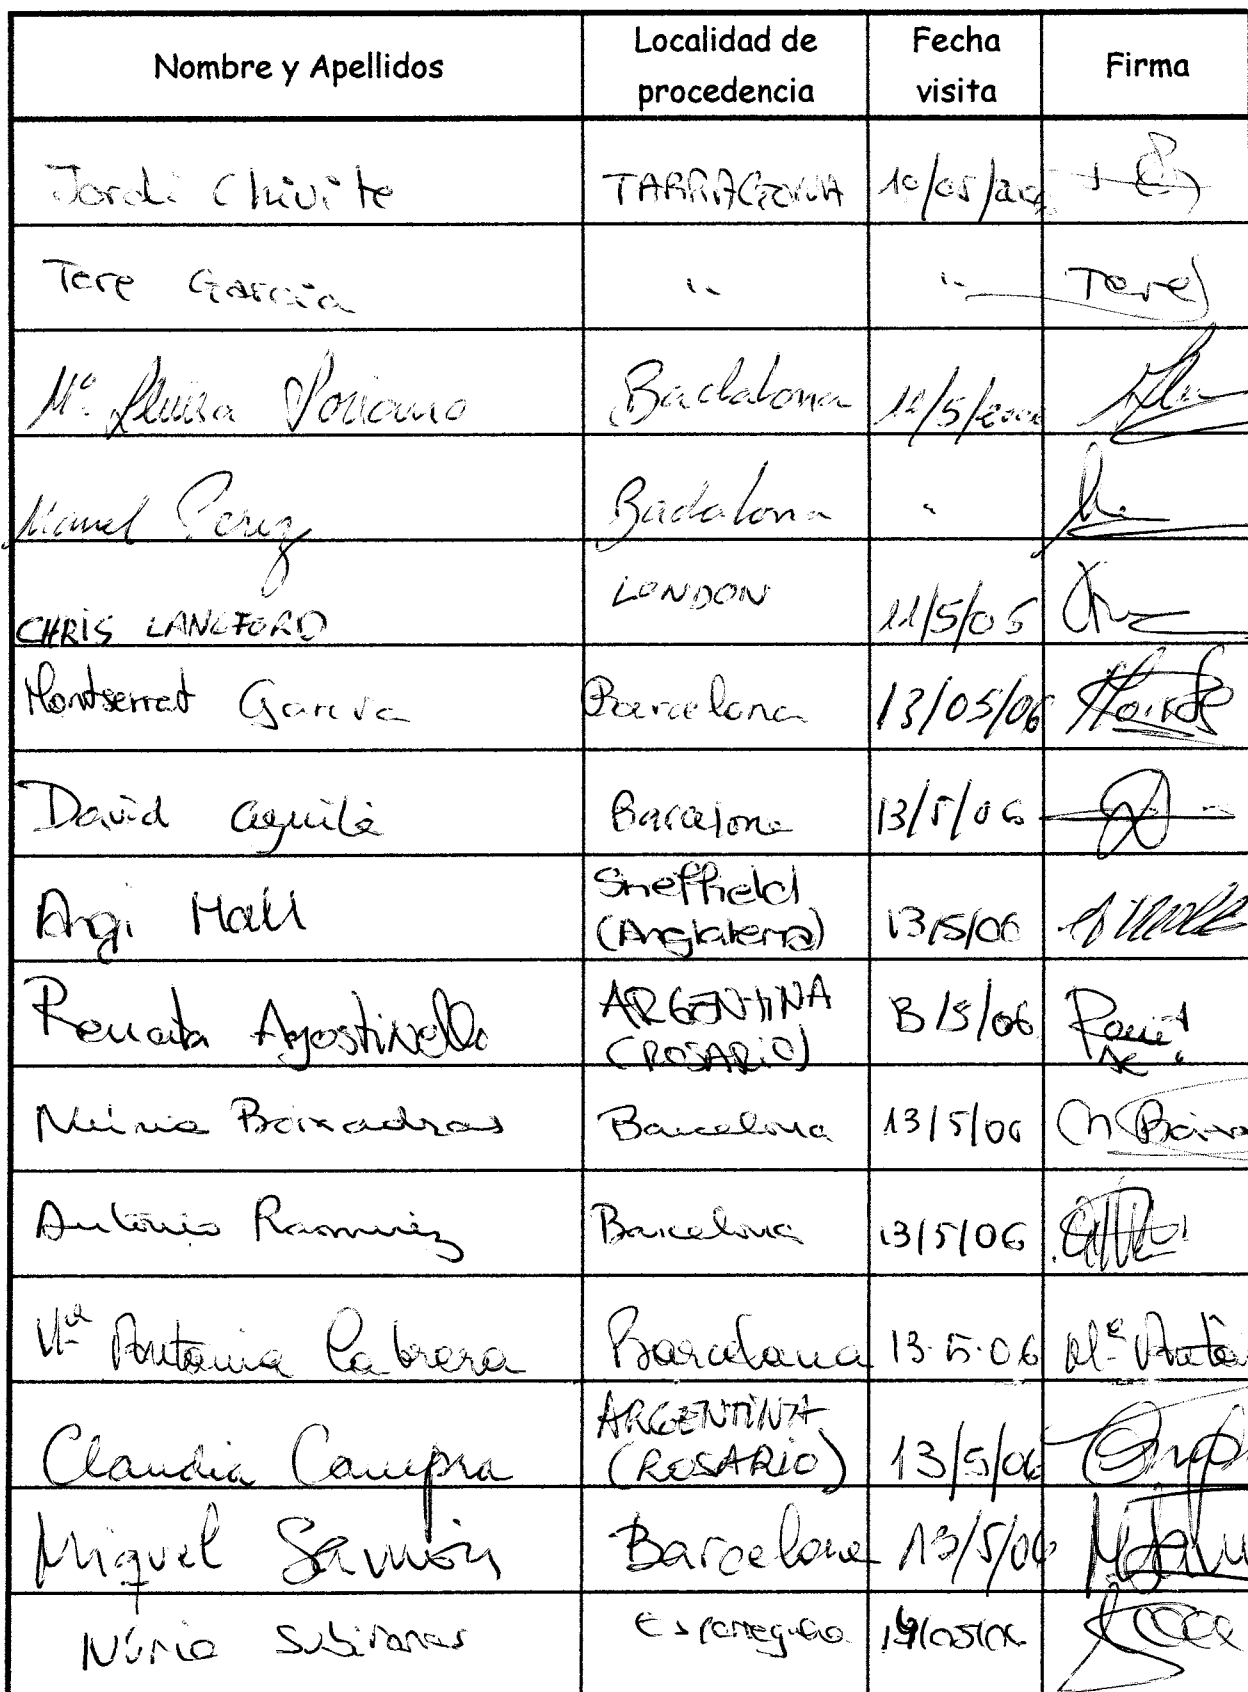 Nombre y Apellidos
Localidad de
procedencia
Fecha
visita
Firma
Jordi Chivite TARRAGONA 10/05/
Tere García " " Tere
Mª Lluïsa Soriano Badalona 11/5/
Manel Perez Badalona "
CHRIS LANGFORD LONDON 11/5/05
Montserrat Garcia Barcelona 13/05/06
David Aguilà Barcelona 13/5/06
Angi Hall Sheffield
(Anglaterra) 13/5/06
Renata Agostinello ARGENTINA
(ROSARIO) 13/5/06
Núria Boixadras Barcelona 13/5/06
Antonio Ramirez Barcelona 13/5/06
Mª Antonia Cabrera Barcelona 13.5.06 Mª
Claudia Campra ARGENTINA
(ROSARIO) 13/5/06
Miquel Barcelona 13/5/06
Núria Subiranas Esparreguera